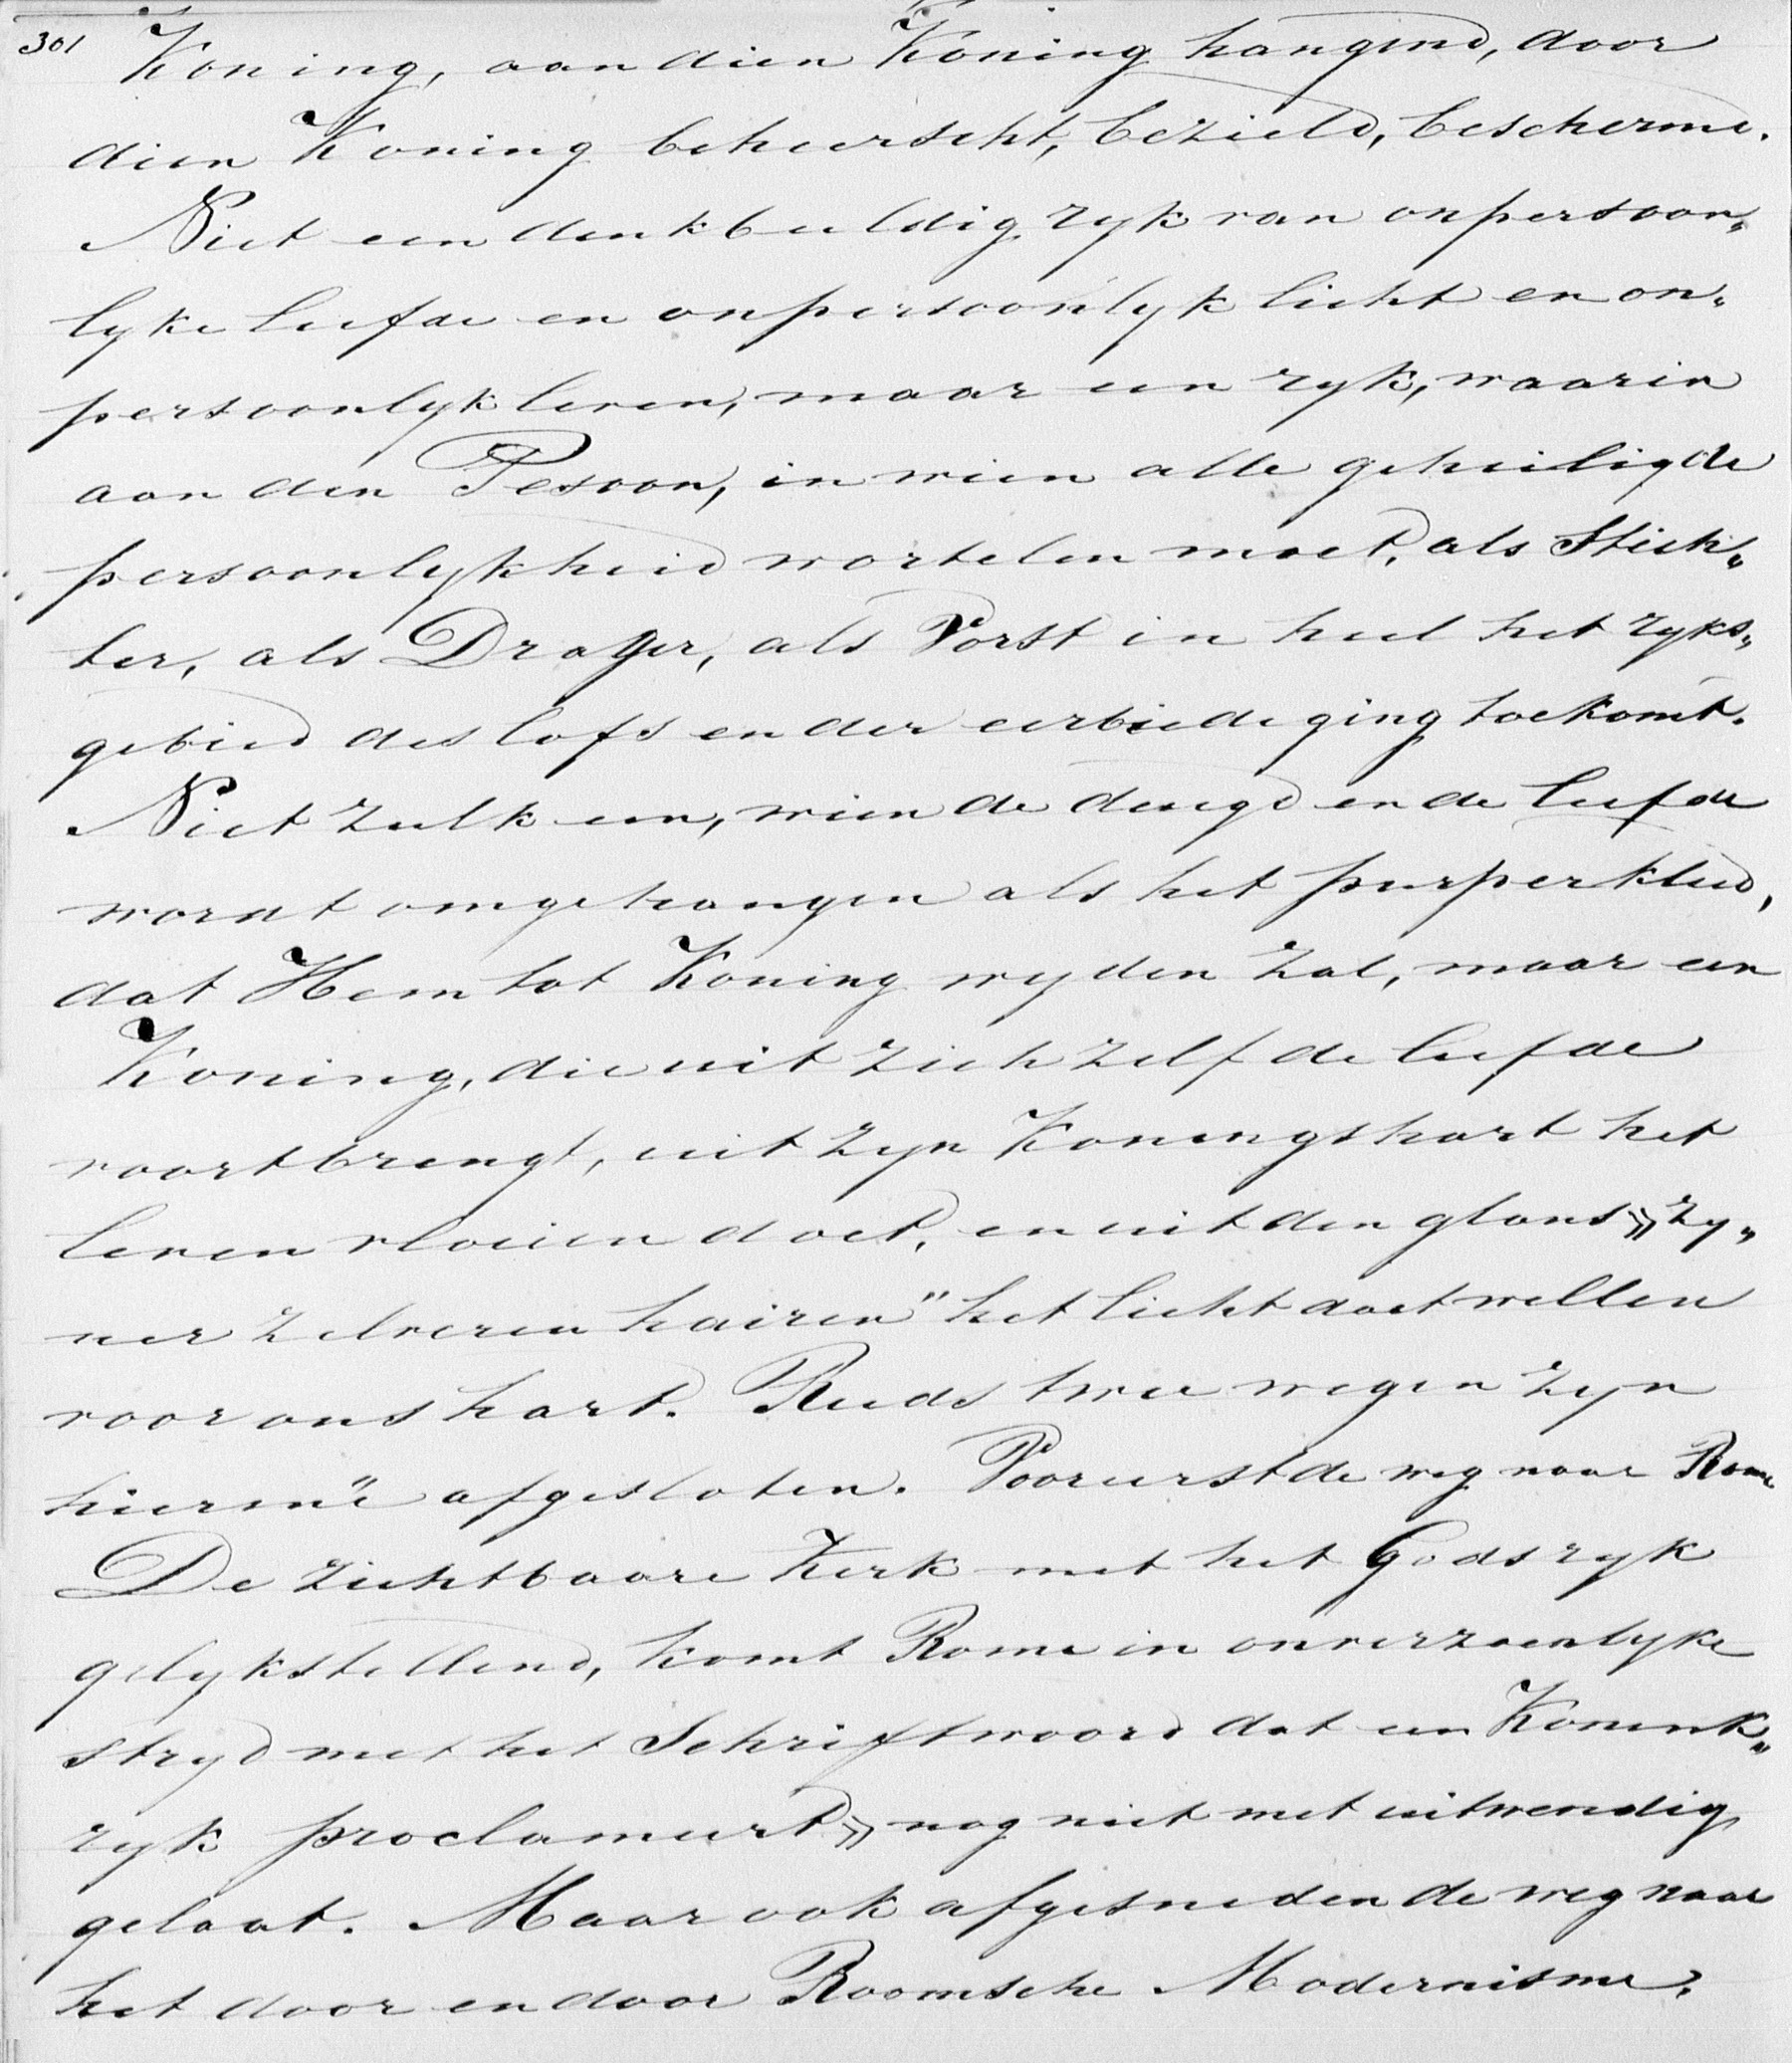 301 Koning, aan dien Koning hangend, door
dien Koning beheerscht, bezield, beschermd.
Niet een denkbeeldig ryk van onpersoon„
lyke liefde en onpersoonlyk licht en on„
persoonlyk leven, maar een ryk, waarin
aan den Pesoon, in wien alle geheiligde
persoonlykheid wortelen moet, als Stich„
ter, als Drager, als Vorst in heel het ryks„
gebied des lofs en der eerbiediging toekomt.
Niet zulk een, wien de deugd en de liefde
wordt omgehangen als het purperkleed,
dat Hem tot Koning wyden zal, maar een
Koning, die uit zich zelf de liefde
voortbrengt, uit zyn Koningshart het
leven vloeien doet, en uit den glans „zy„
ner zelveren hairen" het licht doet wellen
voor ons hart. Reeds twee wegen zyn
hiermeê afgesloten. Vooreerst de weg naar Rome
De zichtbaare Kerk met het Godsryk
gelykstellend, komt Rome in onverzoenlyke
stryd met het Schriftwoord dat een Konink„
ryk proclameert „nog niet met uitwendig
gelaat. Maar ook afgesneden de weg naar
het door en door Roomsche Modernisme.